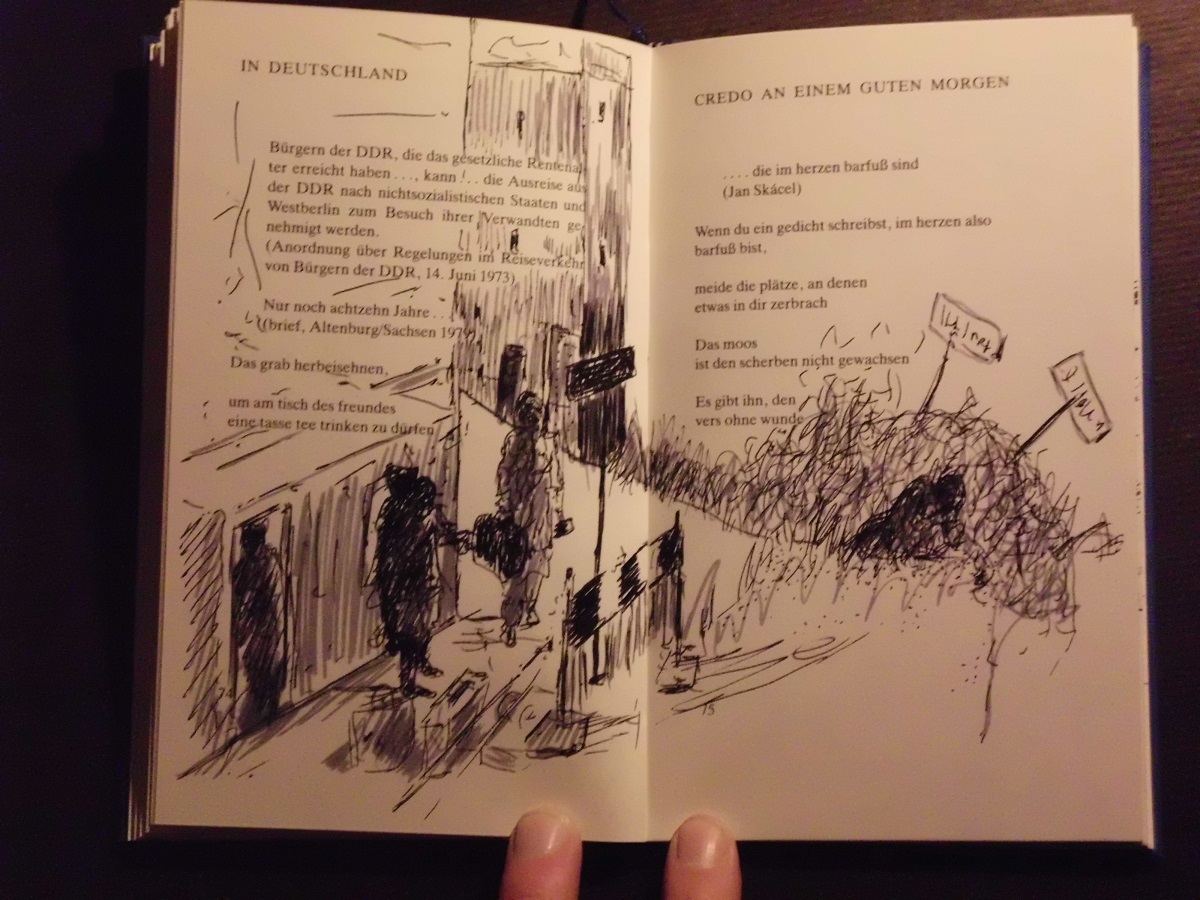 IN DEUTSCHLAND
Bürgern der DDR, die das gesetzliche Rentenal-
ter erreicht haben . . ., kann . . . die Ausreise aus
der DDR nach nichtsozialistischen Staaten und
Westberlin zum Besuch ihrer Verwandten ge-
nehmigt werden.
(Anordnung über Regelungen im Reiseverkehr
von Bürgern der DDR, 14. Juni 1973)
Nur noch achtzehn Jahre . . .
(brief, Altenburg/Sachsen 1979)
Das grab herbeisehnen,
um am tisch des freundes
eine tasse tee trinken zu dürfen
CREDO AN EINEM GUTEN MORGEN
. . . . die im herzen barfuß sind
(Jan Skácel)
Wenn du ein gedicht schreibst, im herzen also
barfuß bist,
meide die plätze, an denen
etwas in dir zerbrach
Das moos
ist den scherben nicht gewachsen
Es gibt ihn, den
vers ohne wunde
15